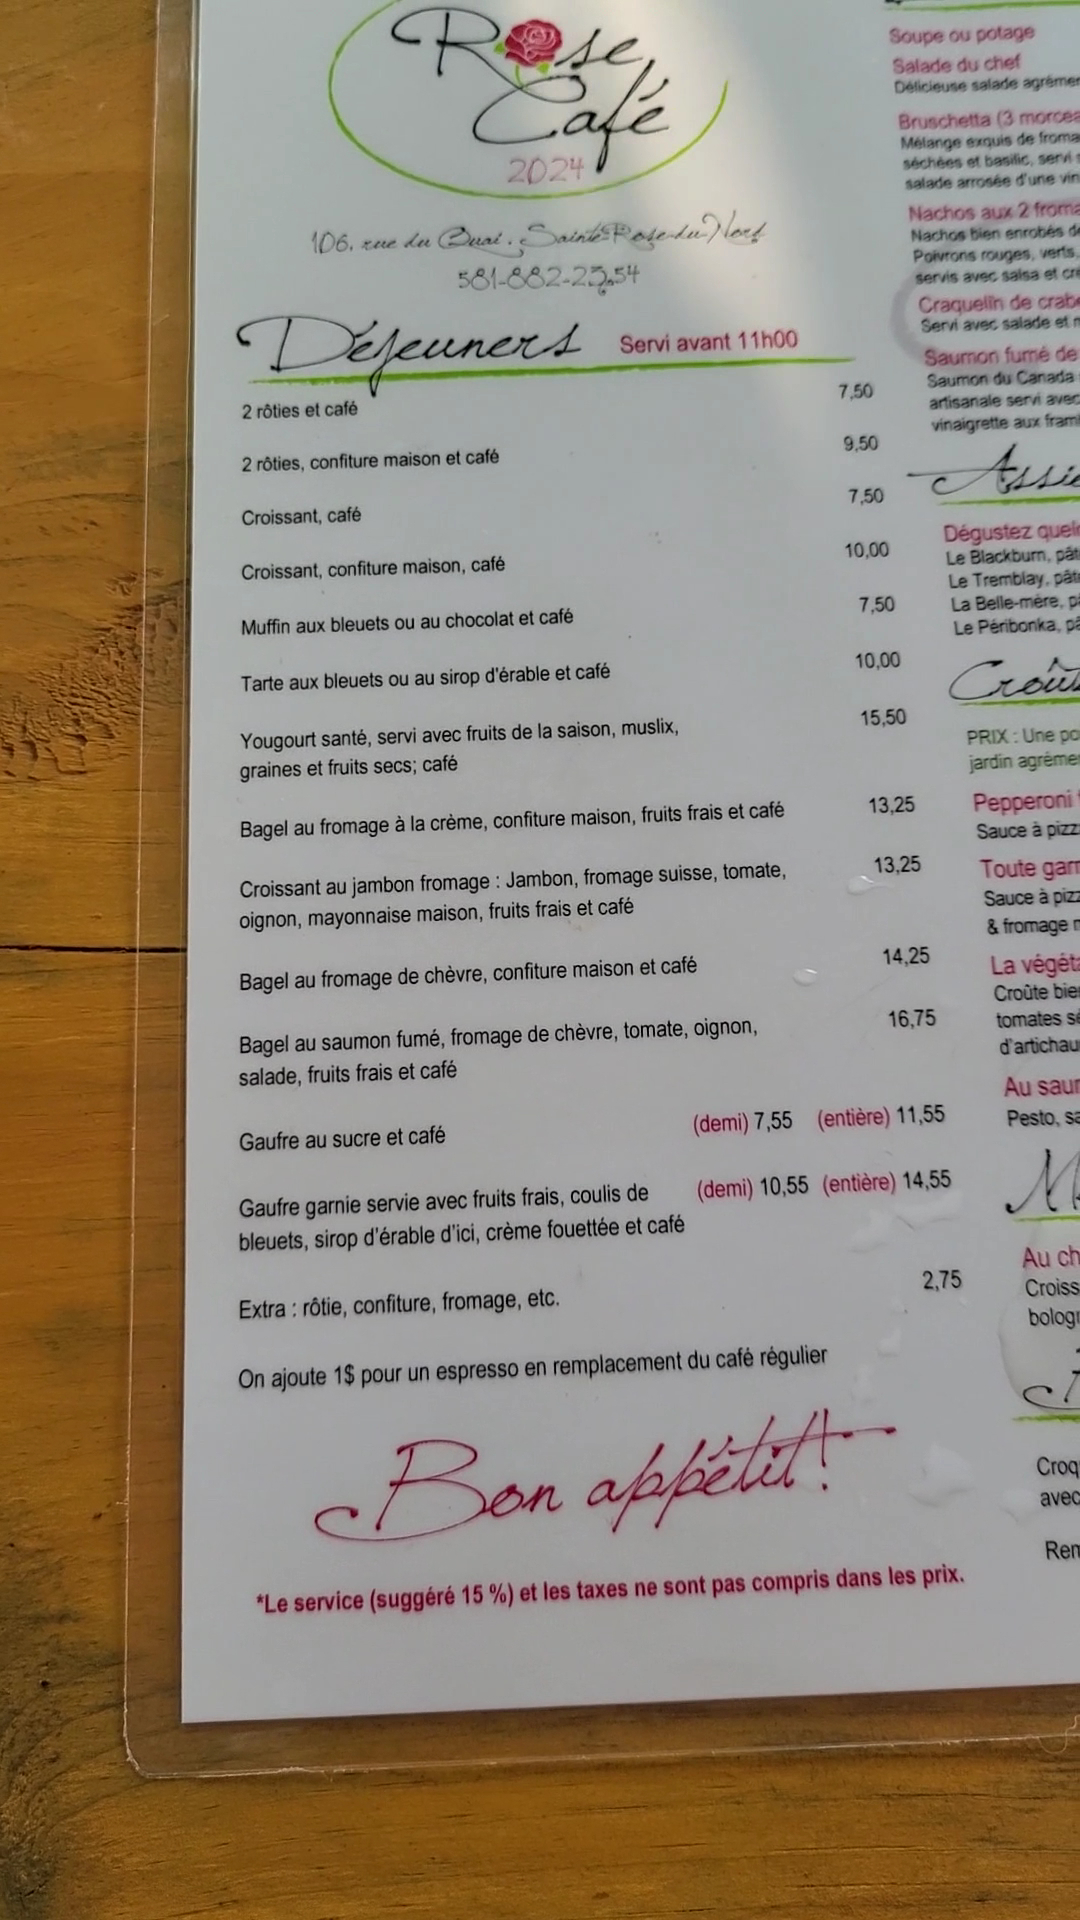 Rose
Café
2024
106, rue du Quai, Sainte-Rose-du-Nord
581-882-2354
Déjeuners Servi avant 11h00
2 rôties et café 7,50
2 rôties, confiture maison et café 9,50
Croissant, café 7,50
Croissant, confiture maison, café 10,00
Muffin aux bleuets ou au chocolat et café 7,50
Tarte aux bleuets ou au sirop d'érable et café 10,00
Yougourt santé, servi avec fruits de la saison, muslix, 15,50
graines et fruits secs; café
Bagel au fromage à la crème, confiture maison, fruits frais et café 13,25
Croissant au jambon fromage : Jambon, fromage suisse, tomate, 13,25
oignon, mayonnaise maison, fruits frais et café
Bagel au fromage de chèvre, confiture maison et café 14,25
Bagel au saumon fumé, fromage de chèvre, tomate, oignon, 16,75
salade, fruits frais et café
Gaufre au sucre et café (demi) 7,55 (entière) 11,55
Gaufre garnie servie avec fruits frais, coulis de (demi) 10,55 (entière) 14,55
bleuets, sirop d'érable d'ici, crème fouettée et café
Extra : rôtie, confiture, fromage, etc. 2,75
On ajoute 1$ pour un espresso en remplacement du café régulier
Bon appétit!
*Le service (suggéré 15 %) et les taxes ne sont pas compris dans les prix.
Soupe ou potage
Salade du chef
Délicieuse salade
Bruschetta (3
Mélange exquis de
séchées et basilic, servi
salade arrosée d'une
Nachos aux 2
Nachos bien enrobés
Poivrons rouges, verts,
servis avec salsa et
Craquelin de
Servi avec salade et
Saumon fumé de
Saumon du Canada
artisanale servi avec
vinaigrette aux
Dégustez
Le Blackburn,
Le Tremblay,
La Belle-mère,
Le Péribonka,
PRIX : Une
jardin
Pepperoni
Sauce à
Toute
Sauce à
& fromage
La
Croûte
tomates
Au
Pesto,
Au
avec